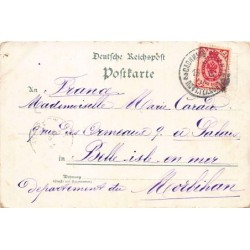 Deutsche Reichspost
Postkarte
An
France
Mademoiselle Marie
rue des Ormeaux 9 à Palais
Belle isle en mer
Département du Morbihan
Wohnung